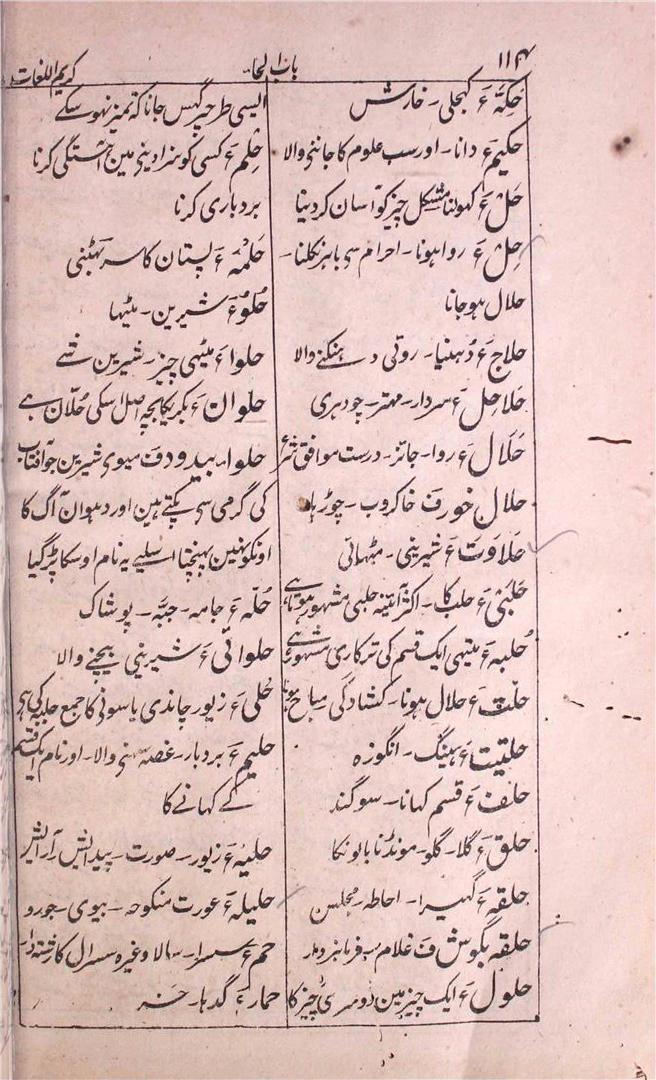 ۱۱۴
باب الحا
کریم اللغات
حِکّه ء کہجلی۔ خارش
حکیم ء دانا۔ اور سب علوم کا جاننی والا
حَلّ ء کہولنا مشکل چیز کو آسان کر دینا
حِلّ ء روا ہونا۔ احرام سی باہر نکلنا۔
حلال ہو جانا
حلاج ء دُہنیا۔ روئی دہنکنے والا
حَلاحِل ء سردار۔ مہتر۔ چودہری
حَلَال ء روا۔ جائز۔ درست موافق شرع
حلال خور ف خاکروب۔ چوڑہا
حَلاوَت ء شیرینی۔ مٹہائی
حَلَبی ء حلب کا۔ اکثر آئینہ حلبی مشہور ہوتا ہے
حُلبہ ء میتہی ایک قسم کی ترکاری مشہور ہے
حلّت ء حلال ہونا۔ کشادگی مباح ہونا
حلتیت ء ہینگ۔ انگوزہ
حلف ء قسم کہانا۔ سوگند
حلق ء گلا۔ گلو۔ مونڈنا بالونکا
حلقہ ء گہیرا۔ احاطہ۔ مجلس
حلقہ بگوش ف غلام۔ فرمانبردار
حلول ء ایک چیز مین دوسری چیز کا
ایسی طرحپر گہس جانا کہ تمیز نہو سکے
حِلم ء کسی کو سزا دینی مین آہستگی کرنا
بردباری کرنا
حَلمُہ ء پستان کا سر۔ بہٹنی
حُلوُ ء شیرین۔ میٹہا
حلوا ء میٹہی چیز۔ شیرین شے
حلوان ء بکریکا بچہ اصل اسکی حُلّان ہے
حلواء بیدود ف میوی شیرین جو آفتاب
کی گرمی سی پکتے ہین اور دہوان آگ کا
اونکو نہین پہنچتا اسلیے یہ نام اوسکا پڑ گیا
حُلّہ ء جامہ۔ جبّہ۔ پوشاک
حلوائی ء شیرینی بیچنے والا
حُلی ء زیور چاندی یا سونی کا جمع حلیہ کی ہی
حلیم ء بردبار۔ غصہ سہنی والا۔ اور نام ایک قسم
کے کہانے کا
حلیہ ء زیور۔ صورت۔ پیدایش آرایش
حلیلہ ء عورت منکوحہ۔ بیوی۔ جورو
حم ء سسرا۔ سالا وغیرہ سسرال کا رشتہ دار۔
حمار ء گدہا۔ خر